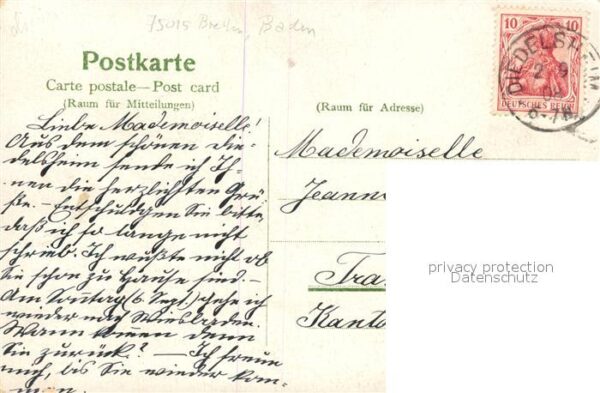 75015 Bretten, Baden
Postkarte
Carte postale—Post card
(Raum für Mitteilungen)
(Raum für Adresse)
10 10
DEUTSCHES REICH
DIEDELSHEIM
2 9
6-7N
Liebe Mademoiselle!
Aus dem schönen Die-
delsheim sende ich Ih-
nen die herzlichsten Grü-
ße. – Entschuldgen Sie bitte,
daß ich so lange nicht
schrieb. Ich wußte nicht ob
Sie schon zu Hause sind. –
Am Sontag (6. Sept.) gehe ich
wieder nach Wiesbaden.
Wann kommen denn
Sie zurück? – Ich freue
mich, bis Sie wieder kom-
men.
Mademoiselle
Jeann
Tra
Kanto
privacy protection
Datenschutz